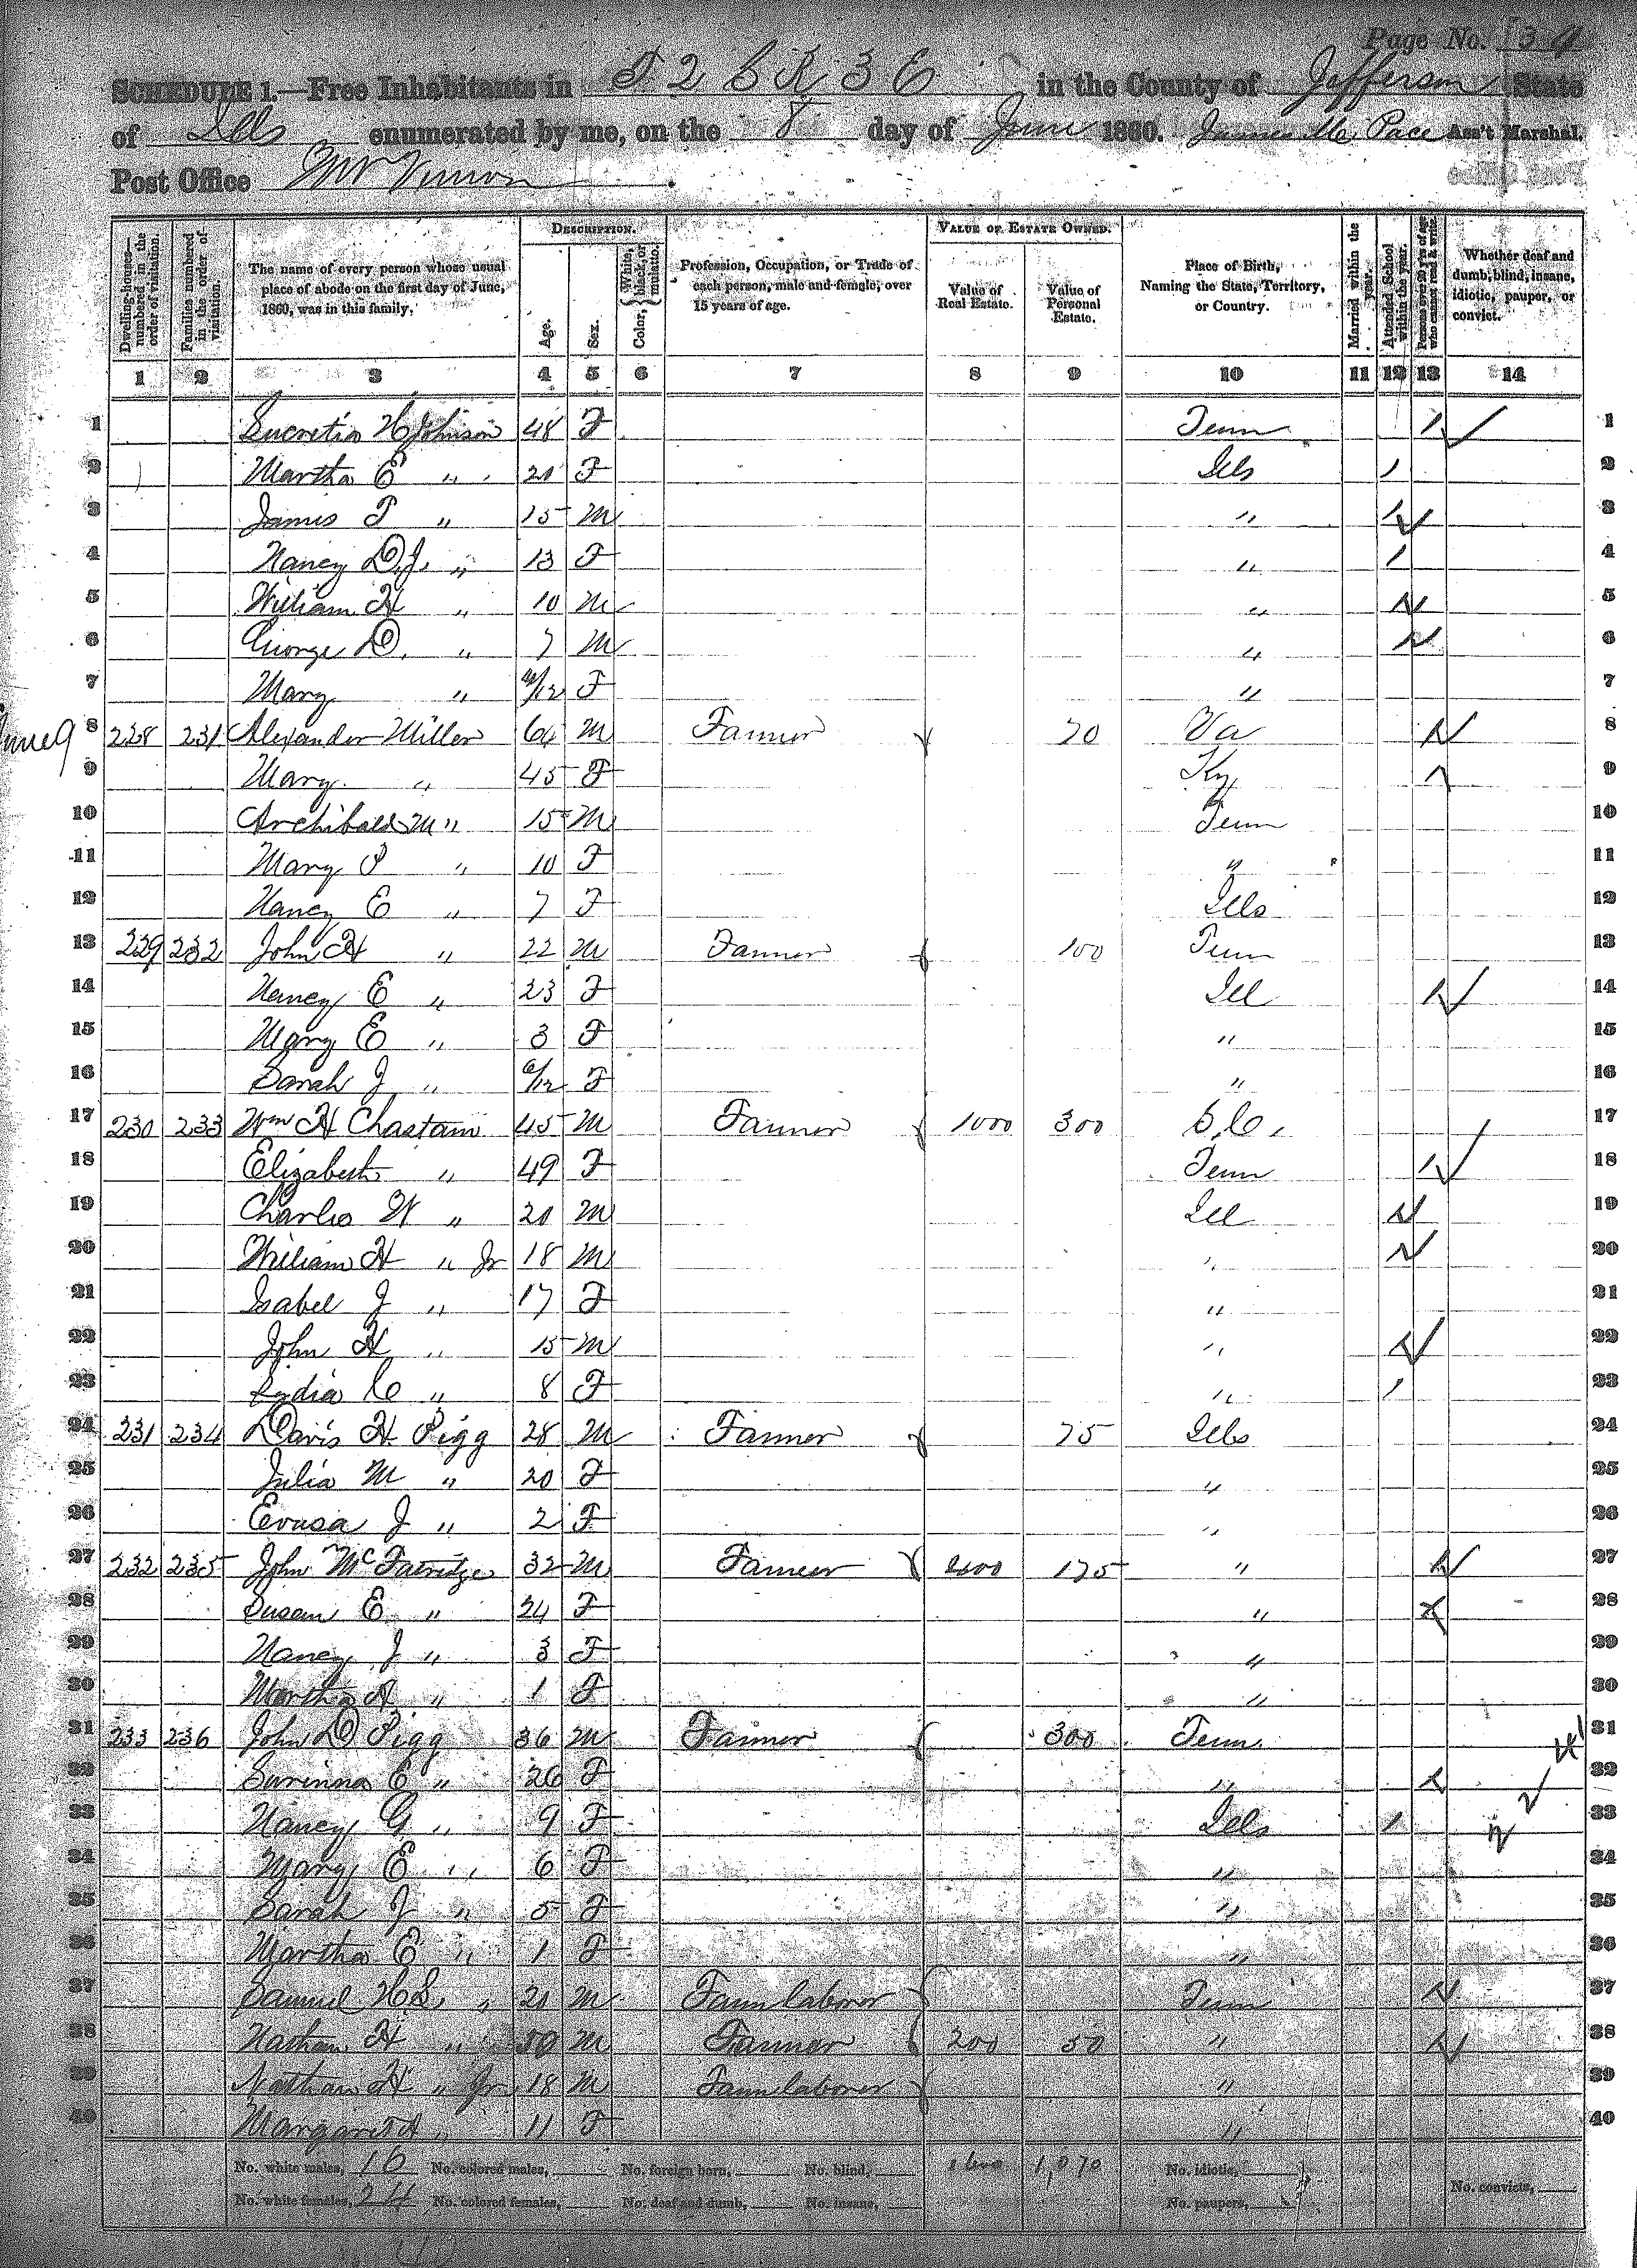 Page No. 39
SCHEDULE 1.—Free Inhabitants in T 2 S R 3 E in the County of Jefferson State
of Ills enumerated by me, on the 8 day of June 1860. James M. Pace Ass't Marshal.
Post Office Mt Vernon
Dwelling-houses—numbered in the order of visitation.
Families numbered in the order of visitation.
The name of every person whose usual place of abode on the first day of June, 1860, was in this family.
DESCRIPTION.
Age.
Sex.
Color, { White, black, or mulatto.
Profession, Occupation, or Trade of each person, male and female, over 15 years of age.
VALUE OF ESTATE OWNED.
Value of Real Estate.
Value of Personal Estate.
Place of Birth, Naming the State, Territory, or Country.
Married within the year.
Attended School within the year.
Persons over 20 y'rs of age who cannot read & write.
Whether deaf and dumb, blind, insane, idiotic, pauper, or convict.
1 2 3 4 5 6 7 8 9 10 11 12 13 14
1 Lucretia H Johnson 48 F Tenn 1 1
2 Martha E " 20 F Ills 1 2
3 James P " 15 M " 1 3
4 Nancy D.J. " 13 F " 1 4
5 William H " 10 M " 1 5
6 George D. " 7 M " 1 6
7 Mary " /12 F " 7
June 9 8 228 231 Alexander Miller 64 M Farmer 70 Va 1 8
9 Mary " 45 F Ky 1 9
10 Archibald M " 15 M Tenn 10
11 Mary P " 10 F " 11
12 Nancy E " 7 F Ills 12
13 229 232 John H " 22 M Farmer 100 Tenn 13
14 Nancy E " 23 F Ill 1 14
15 Mary E " 3 F " 15
16 Sarah J " 6/12 F " 16
17 230 233 Wm H Chastain 45 M Farmer 1000 300 S.C. 17
18 Elizabeth " 49 F Tenn 1 18
19 Charles W " 20 M Ill 1 19
20 William H " Jr 18 M " 1 20
21 Isabel J " 17 F " 21
22 John H " 15 M " 1 22
23 Lydia C " 8 F " 1 23
24 231 234 Davis H Pigg 28 M Farmer 75 Ills 24
25 Julia M " 20 F " 25
26 J " 2 F " 26
27 232 235 John McFatridge 32 M Farmer 400 175 " 1 27
28 Susan E " 24 F " 1 28
29 Nancy J " 3 F " 29
30 Martha A " 1 F " 30
31 233 236 John D Pigg 36 M Farmer 300 Tenn 31
32 E " 26 F " 1 32
33 Nancy G " 9 F Ills 1 33
34 Mary E " 6 F " 34
35 Sarah J " 5 F " 35
36 Martha E " 1 F " 36
37 Samuel H.S. " 21 M Farm laborer Tenn 1 37
38 Nathan H " 50 M Farmer 200 50 " 1 38
39 Nathan H " Jr 18 M Farm laborer " 39
40 Margaret A " 11 F " 40
No. white males, 16 No. colored males, No. foreign born, No. blind, 1600 1,070 No. idiotic,
No. white females, 24 No. colored females, No. deaf and dumb, No. insane, No. paupers, No. convicts,